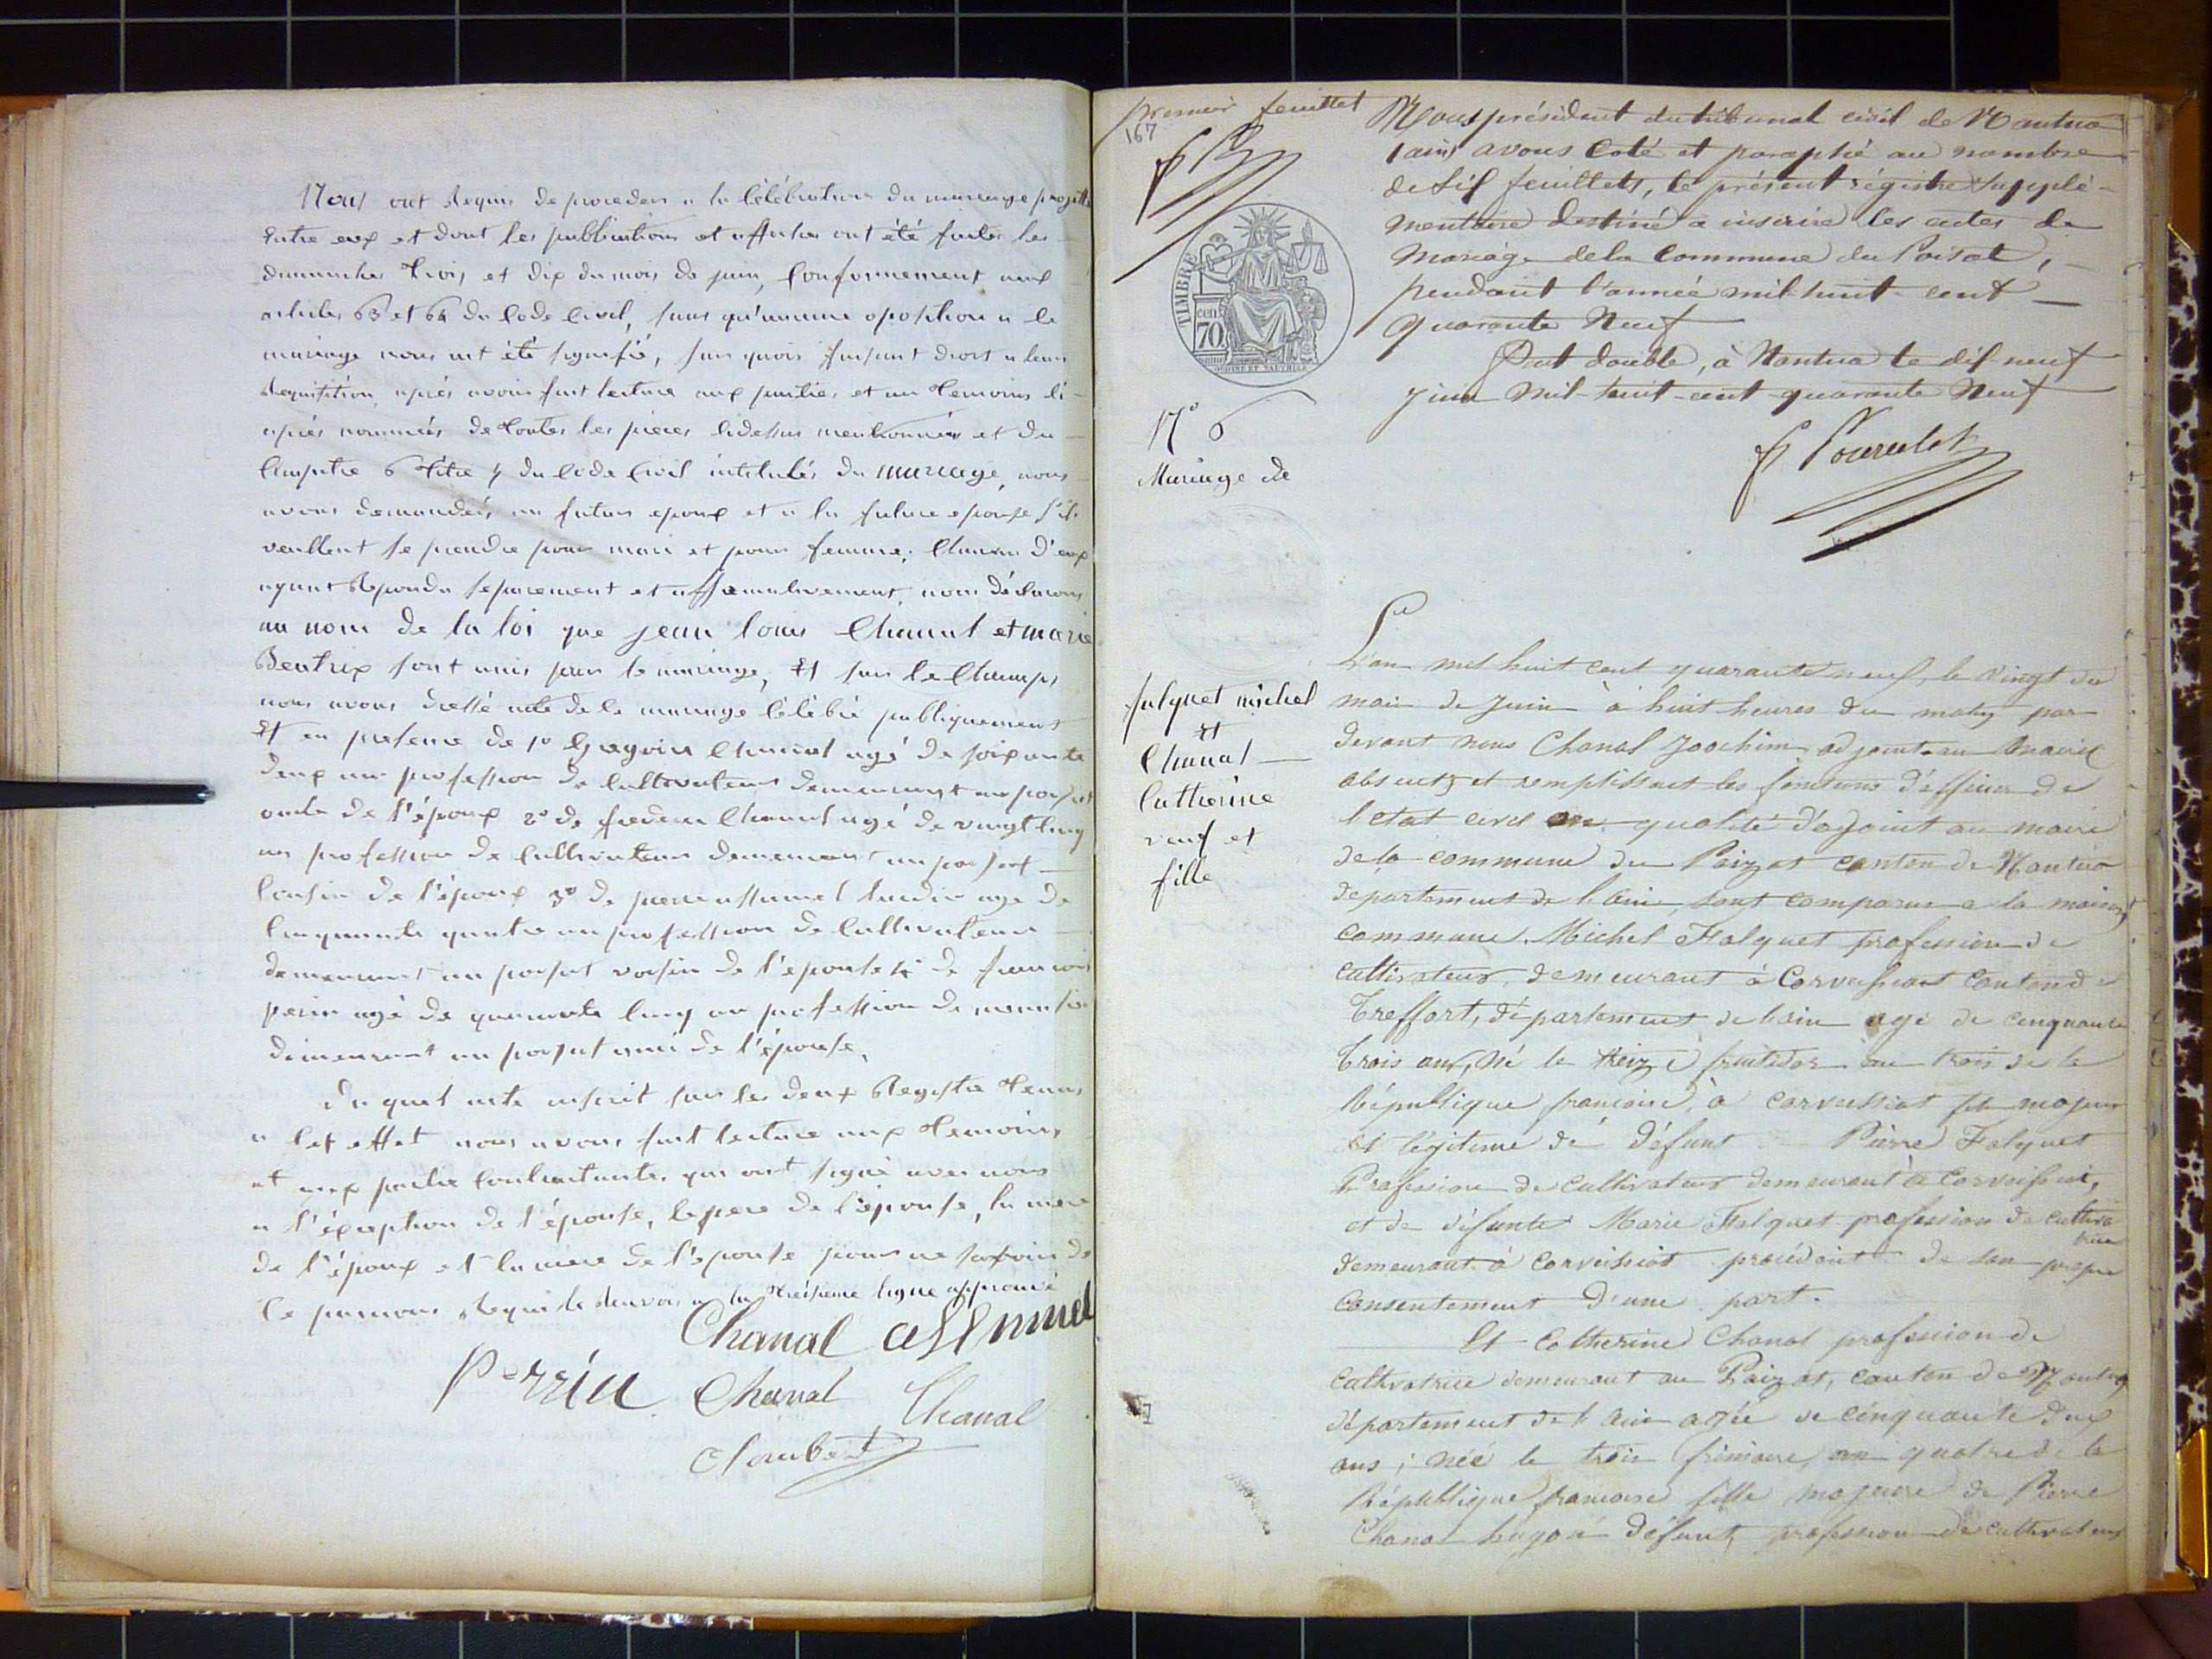 Nous ont requis de proceder a la célébration du mariage projetté
entre eux et dont les publications et affiches ont été faites les
dimanches trois et dix du mois de juin, conformement aux
articles 63 et 64 du Code Civil, sans qu'aucune oposition a le
mariage nous ait été signifié, sur quoi faisant droit a leur
requisition, après avoir fait lecture aux parties et au temoins ci-
après nommés de toutes les pièces cidessus mentionnées et du
Chapitre 6 titre 5 du code Civil intitulés du mariage, nous
avons demandés au futur epoux et a la future epouse s'ils
veullent se prendre pour mari et pour femme; chacun d'eux
ayant repondu separement et affirmativement, nous déclarons
au nom de la loi que jean louis Chanal et marie
Beatrix sont unis par le mariage, Et sur le Champs
nous avons dressé acte de le mariage célébré publiquement
Et en presence de 1º Gregoire Chanal agé de soixante
deux ans profession de Cultivateur demeurant au poizat
oncle de l'époux 2º de frederic Chanal agé de vingt cinq
an profession de Cultivateur demeurant au poizat
Cousin de l'époux 3º de pierre assumel agé de
Cinquante quatre an profession de Cultivateur
demeurant au poizat voisin de l'épouse 4º de francois
perin agé de quarante cinq an profession de menuisier
demeurant au poizat ami de l'épouse,
du quel acte inscrit sur les deux Registre tenus
a cet effet nous avons fait lecture aux temoins,
et aux partie Contractantes qui ont signé avec nous
a l'éxception de l'épouse, le pere de l'épouse, la mere
de l'époux et la mere de l'épouse pour ne savoir de
la treisieme ligne approuvé
Chanal assumel
Perrin Chanal Chanal
Joubert
premier feuillet
167
Nous président du tribunal civil de Nantua
(ain) avons coté et paraphé au nombre
de six feuillets, le présent régistre supplé-
mentaire destiné a inscrire les actes de
Mariage de la Commune du Poisat,
pendant l'année mil-huit-cent
quarante Neuf
Fait double, à Nantua le dix neuf
juin Mil-huit-cent-quarante Neuf
TIMBRE
cen 70
Nº 6
Mariage de
falquet michel
Et
Chanal
Catherine
veuf et
fille
L'an mil huit cent quarante neuf, le vingt du
mois de Juin à huit heures du matin par
devant nous Chanal Joachim adjoint au maire
absent, et remplissant les fonctions d'officier de
l'etat civil en qualité d'adjoint au maire
de la commune du Poizat canton de Nantua
departement de l'ain, sont comparu a la maison
commune. Michel Falquet profession de
cultivateur, demeurant à Corveissiat Canton de
Treffort, département de l'ain agé de cinquante
trois ans, né le treize fructidor an trois de la
République francaise, à corveissiat fils majeur
et légitime de défunt Pierre Falquet
Profession de cultivateur demeurant à Corveissiat,
et de défunte Marie Falquet profession de cultiva
trice
demeurant à Corveissiat procédant de son propre
Consentement d'une part.
Et Catherine Chanal profession de
Cultivatrice demeurant au Poizat, canton de Nantua
département de l'Ain agée de cinquante deux
ans; née le trois frimaire, an quatre de la
République francaise fille majeure de Pierre
Chanal défunt, profession de cultivateur